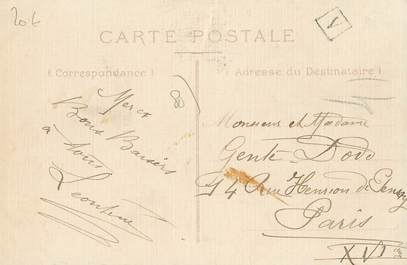 206
V
CARTE POSTALE
(Correspondance)
Adresse du Destinataire)
80
Merci
Bons Baisers
à tous
Léontine
Monsieur et Madame
Genté Dodo
14 Rue Henrion de Pensey
Paris
XVI